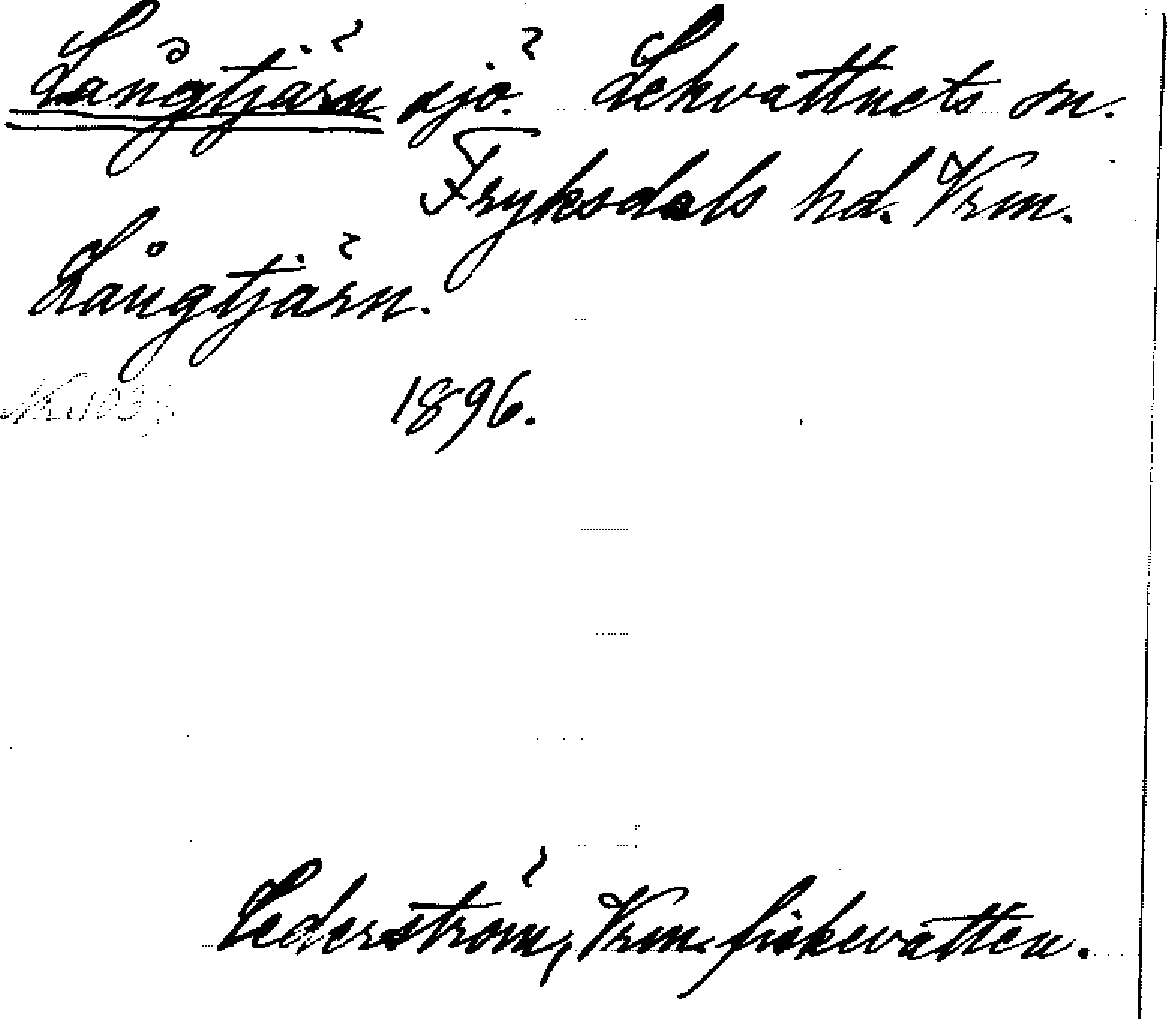 Långtjärn sjö. Lekvattnets sn.
Fryksdals hd. Vrm.
Långtjärn.
1896.
Cederström, Vrm. fiskevatten.